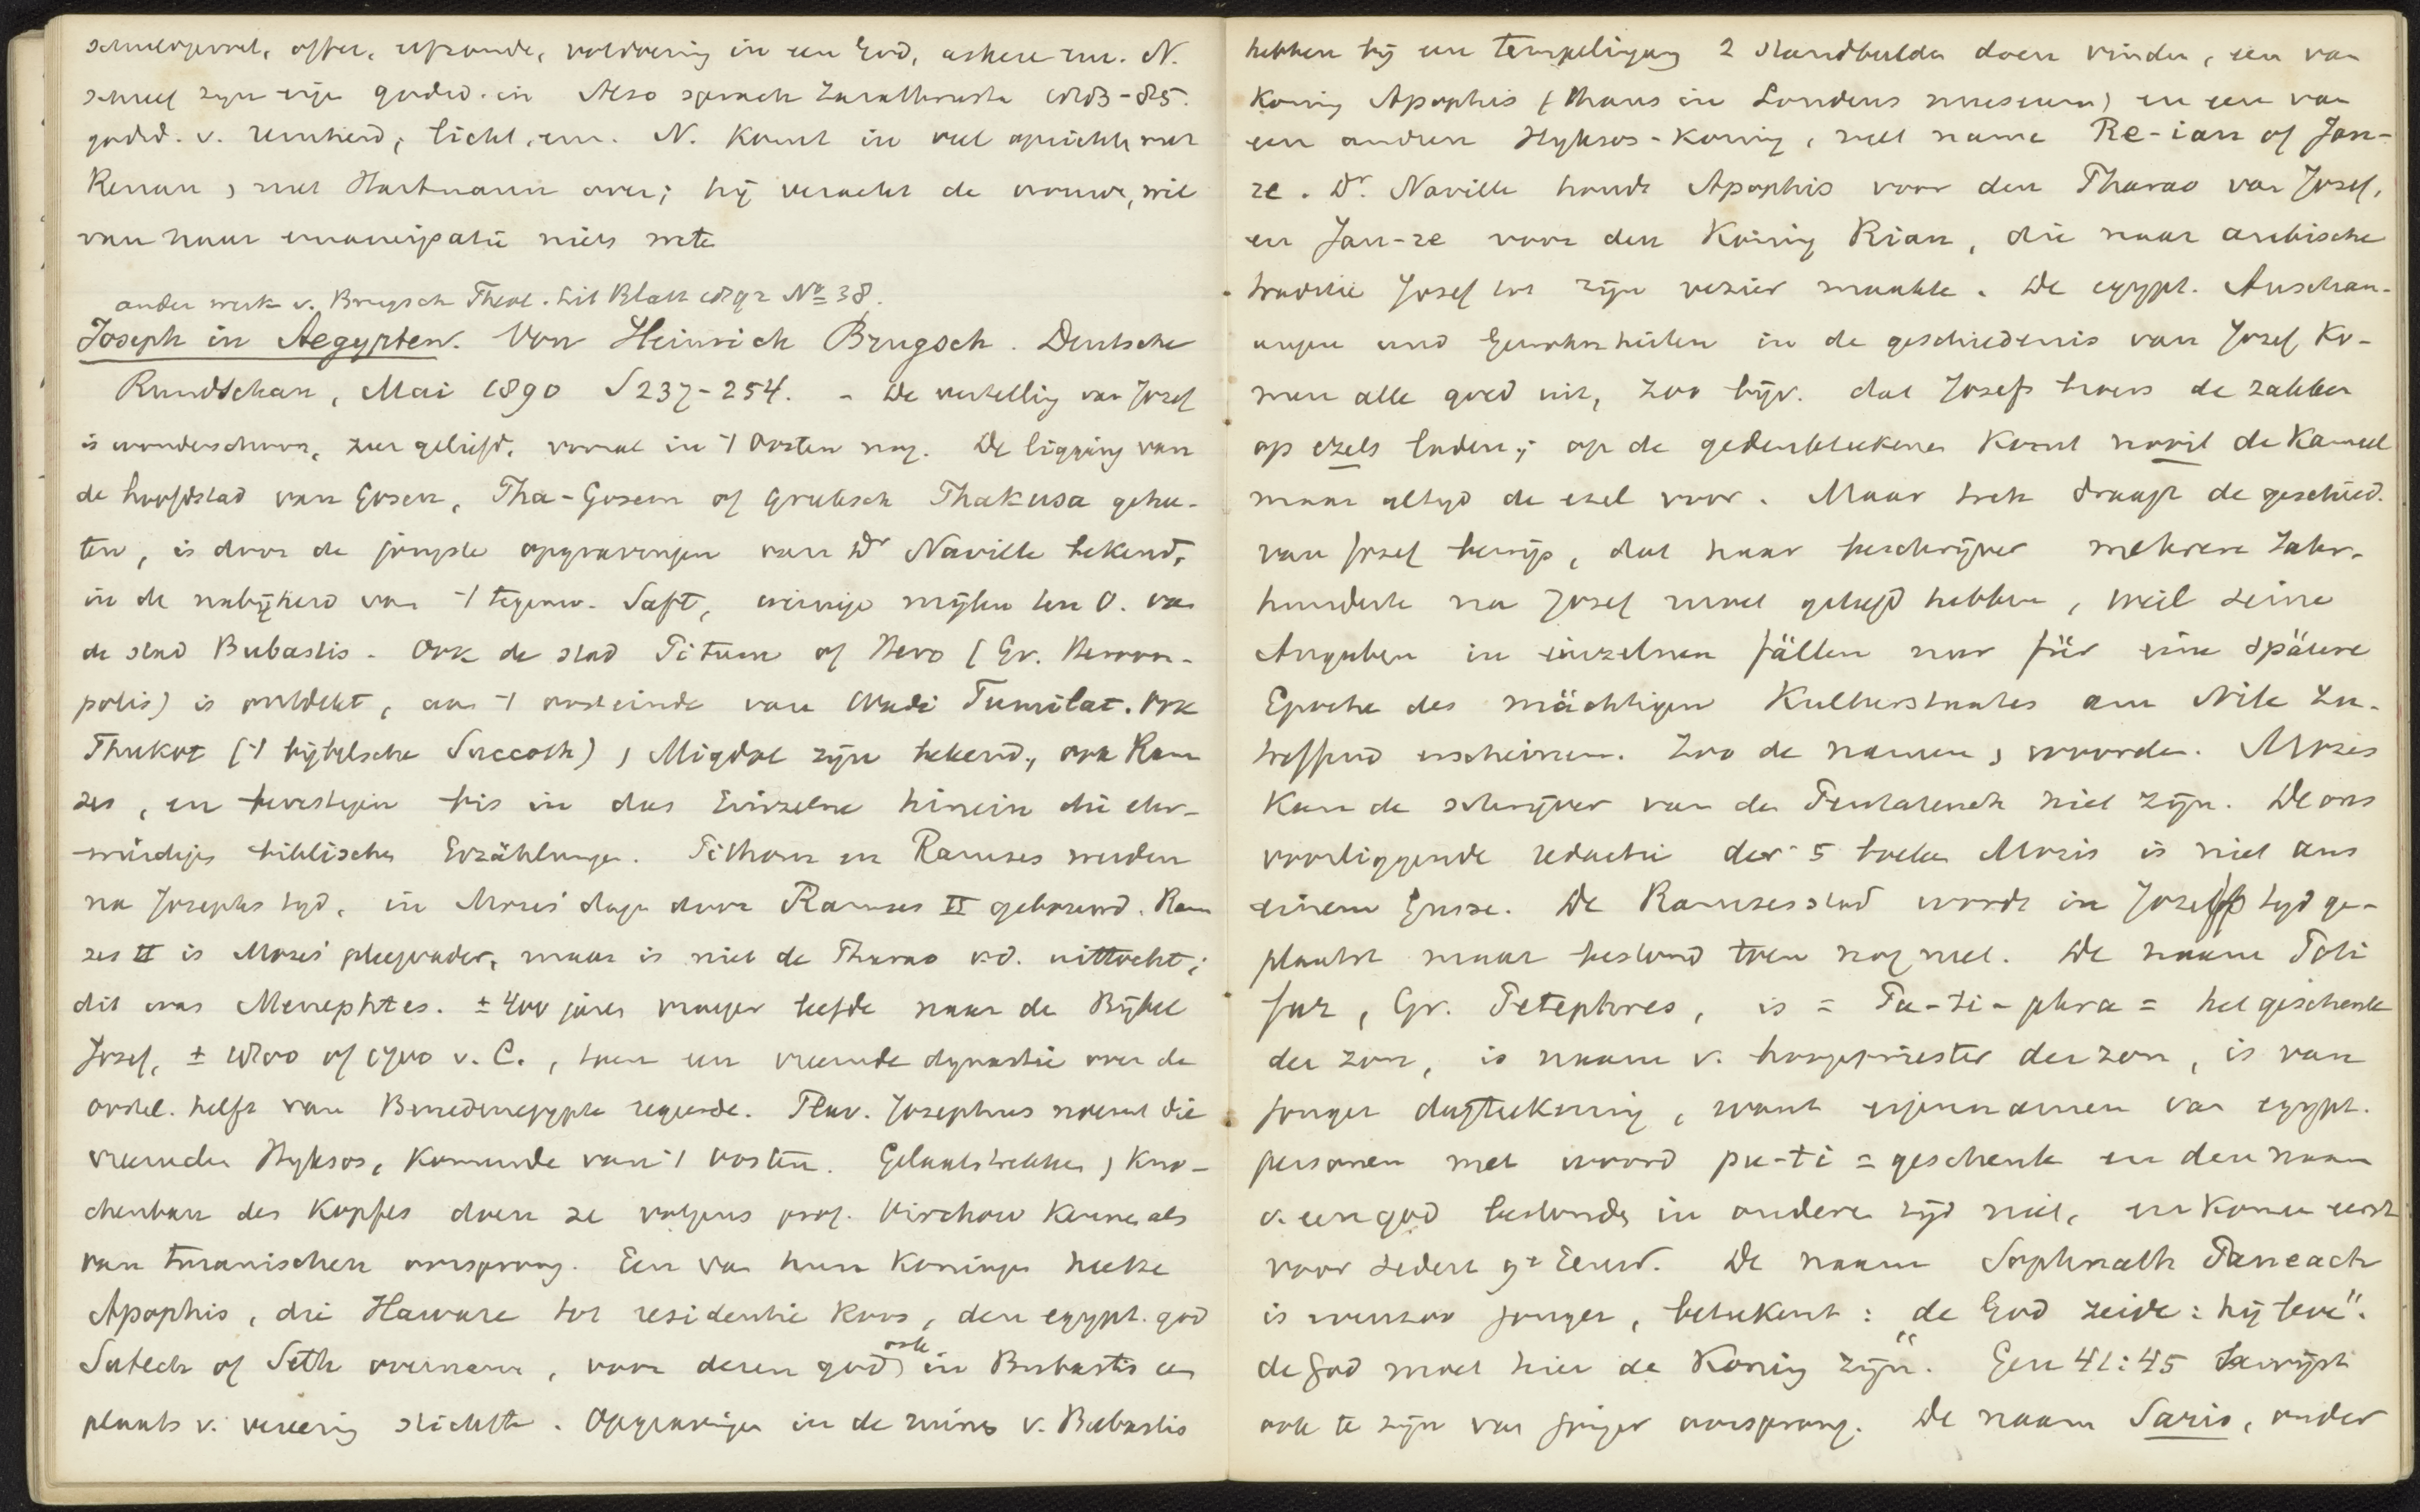 schuldgevoel, offer, ufzonde, voldoening in een God, askese enz. N.
schreef zijn eigen godsd. in Also sprach Zarathustra 1883-85.
godsd. v. reinheid, licht, enz. N. komt in veel opzichten met
Renan, met Hartmann over; hij veracht de vrouw, wil
van haar emancipatie niets weten
ander werk v. Brugsch Theol. Lit Blatt 1892 No 38.
Joseph in Aegypten. Von Heinrich Brugsch. Deutsche
Rundschau, Mai 1890 S 237-254. - De vertelling van Jozef
is wonderschoon, zeer geliefd, vooral in 't Oosten nog. De ligging van
de hoofdstad van Gosen, Pha-Gosem of Grieksch Phakusa gehee-
ten, is door de jongste opgravingen van Dr Naville bekend,
in de nabijheid van 't tegenw. Saft, weinige mijlen ten O. van
de stad Bubastis. Ook de stad Pitum of Hero (Gr. Heroon-
polis) is ontdekt, aan 't oosteinde van Wadi Tumilat. Ook
Thukot ('t bijbelsche Succoth), Migdol zijn bekend, ook Ram
ses, en bevestigen bis in das Einzelne hinein die ehr-
würdigen biblischen Erzählungen. Pithom en Ramses werden
na Josephs tijd, in Mozes' dagen door Ramses II gebouwd. Ram
ses II is Mozes' pleegvader, maar is niet de Pharao v.d. uittocht;
dit was Menephtes. ± 400 jaren vroeger leefde naar de Bijbel
Jozef, ± 1800 of 1700 v. C., toen een vreemde dynastie over de
oostel. helft van Benedenegypte regeerde. Flav. Josephus noemt die
vreemden Hyksos, komende van 't oosten. Gelaatstrekken, Kno-
chenbau des Kopfes doen ze volgens prof. Virchow kennen als
van turanischen oorsprong. Een van hun koningen heette
Apophis, die Haware tot residentie koos, den egypt. god
Sutech of Seth overnam, voor deren god ook in Bubastis een
plaats v. vereering stichtte. Opgravingen in de ruines v. Bubastis
hebben bij een tempelingang 2 standbeelden doen vinden, een van
koning Apophis (thans in Londens museum) en een van
een anderen Hyksos-koning, met name Re-ian of Jan-
re. Dr. Naville houdt Apophis voor den Pharao van Jozef,
en Jan-re voor den koning Rian, die naar arabische
traditie Jozef tot zijn vezier maakte. De egypt. Anschau-
ungen und Gewohnheiten in de geschiedenis van Jozef ko-
men alle goed uit, zoo bijv. dat Jozefs broers de zakken
op ezels laden; op de gedenkteekenen komt nooit de kameel
maar altijd de ezel voor. Maar toch draagt de geschied.
van Jozef bewijs, dat haar beschrijver mehrere Jahr-
hunderte na Jozef moet geleefd hebben, weil seine
Angaben in einzelnen fällen nur für eine spätere
Epoche des mächtigen Kulturstaates am Nile zu-
treffend erscheinen. Zoo de namen, woorden. Mozes
kan de schrijver van de Pentateuch niet zijn. De ons
voorliggende redactie der 5 boeken Mozis is niet aus
einem Gusse. De Ramsesstad wordt in Jozefs tijd ge-
plaatst maar bestond toen nog niet. De naam Poti
far, Gr. Petephres, is = Pu-ti-phra = het geschenk
der zon, is naam v. hoogepriester der zon, is van
jonger dagteekening, want eigennamen van egypt.
personen met woord pu-ti = geschenk en den naam
v. een god bestonden in oudere tijd niet, en komen eerst
voor sedert 9e Eeuw. De naam Sophnath Paneach
is evenzoo jonger, beteekent: „de God zeide: hij leve".
de god moet hier de koning zijn". Gen 41:45 bewijst
ook te zijn van jonger oorsprong. De naam Saris, onder